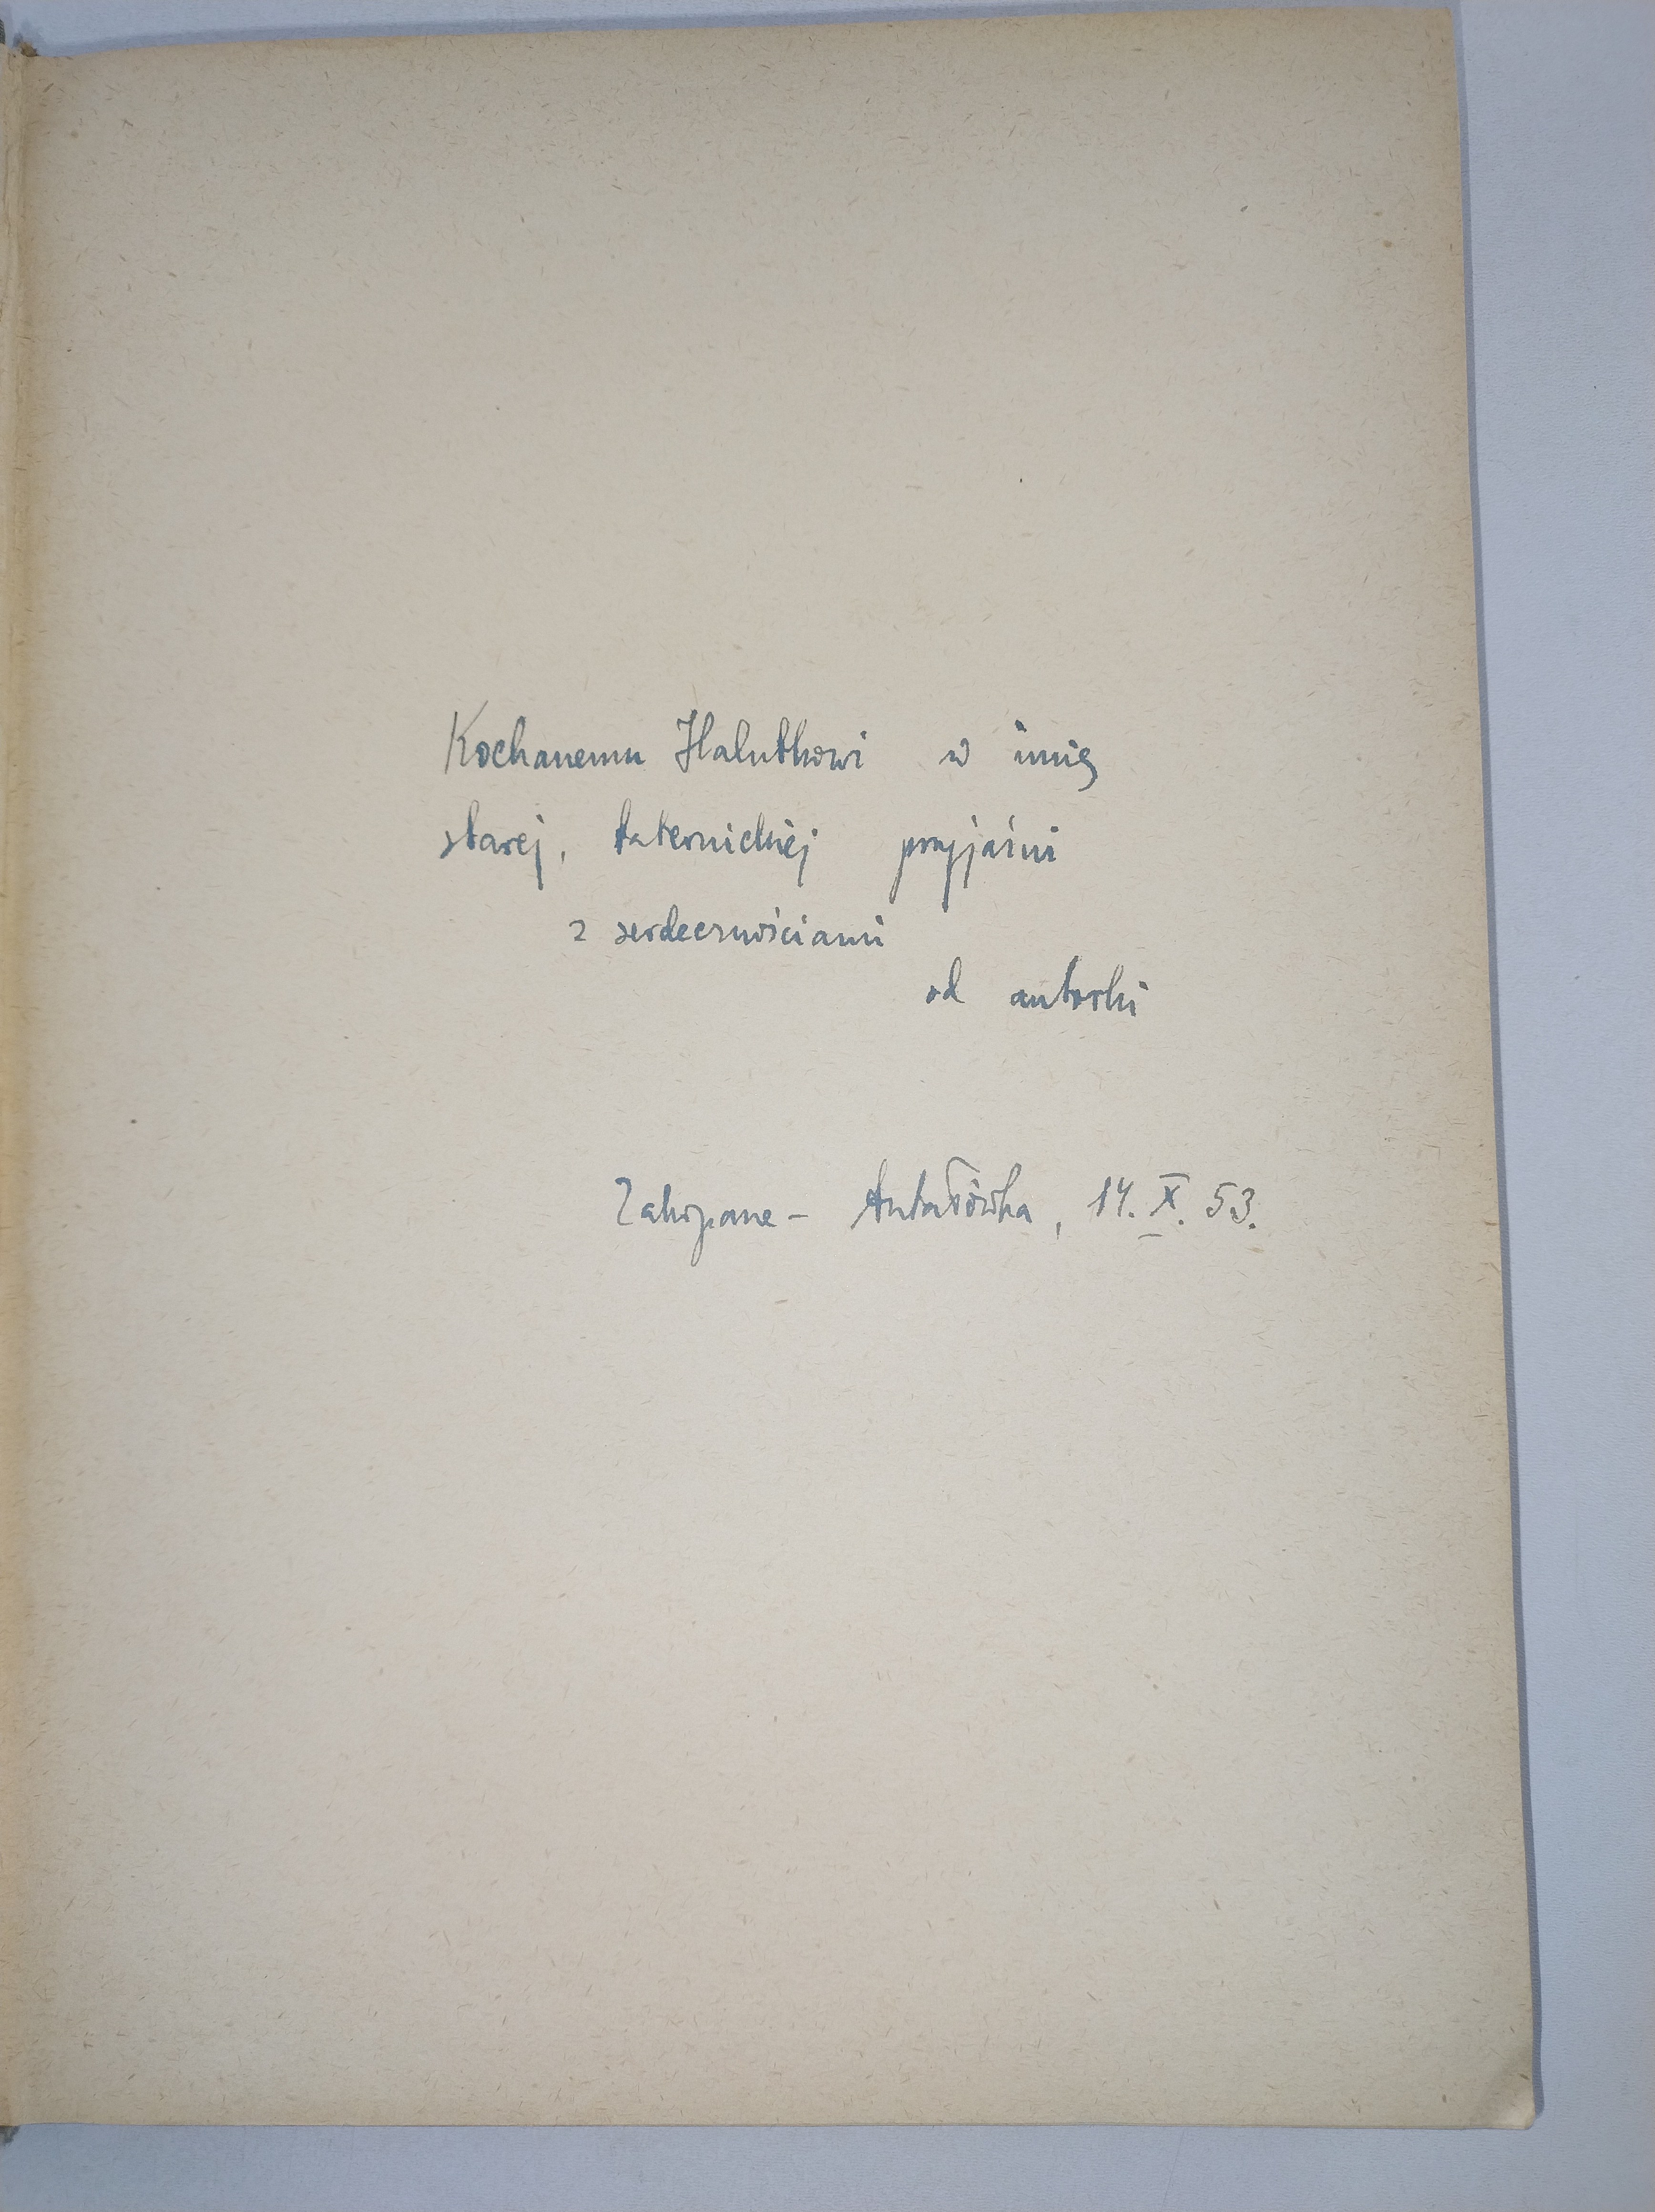 Kochanemu Halutkowi w imię
starej, taternickiej przyjaźni
z serdecznościami
od autorki
Zakopane - Antałówka, 14. X. 53.